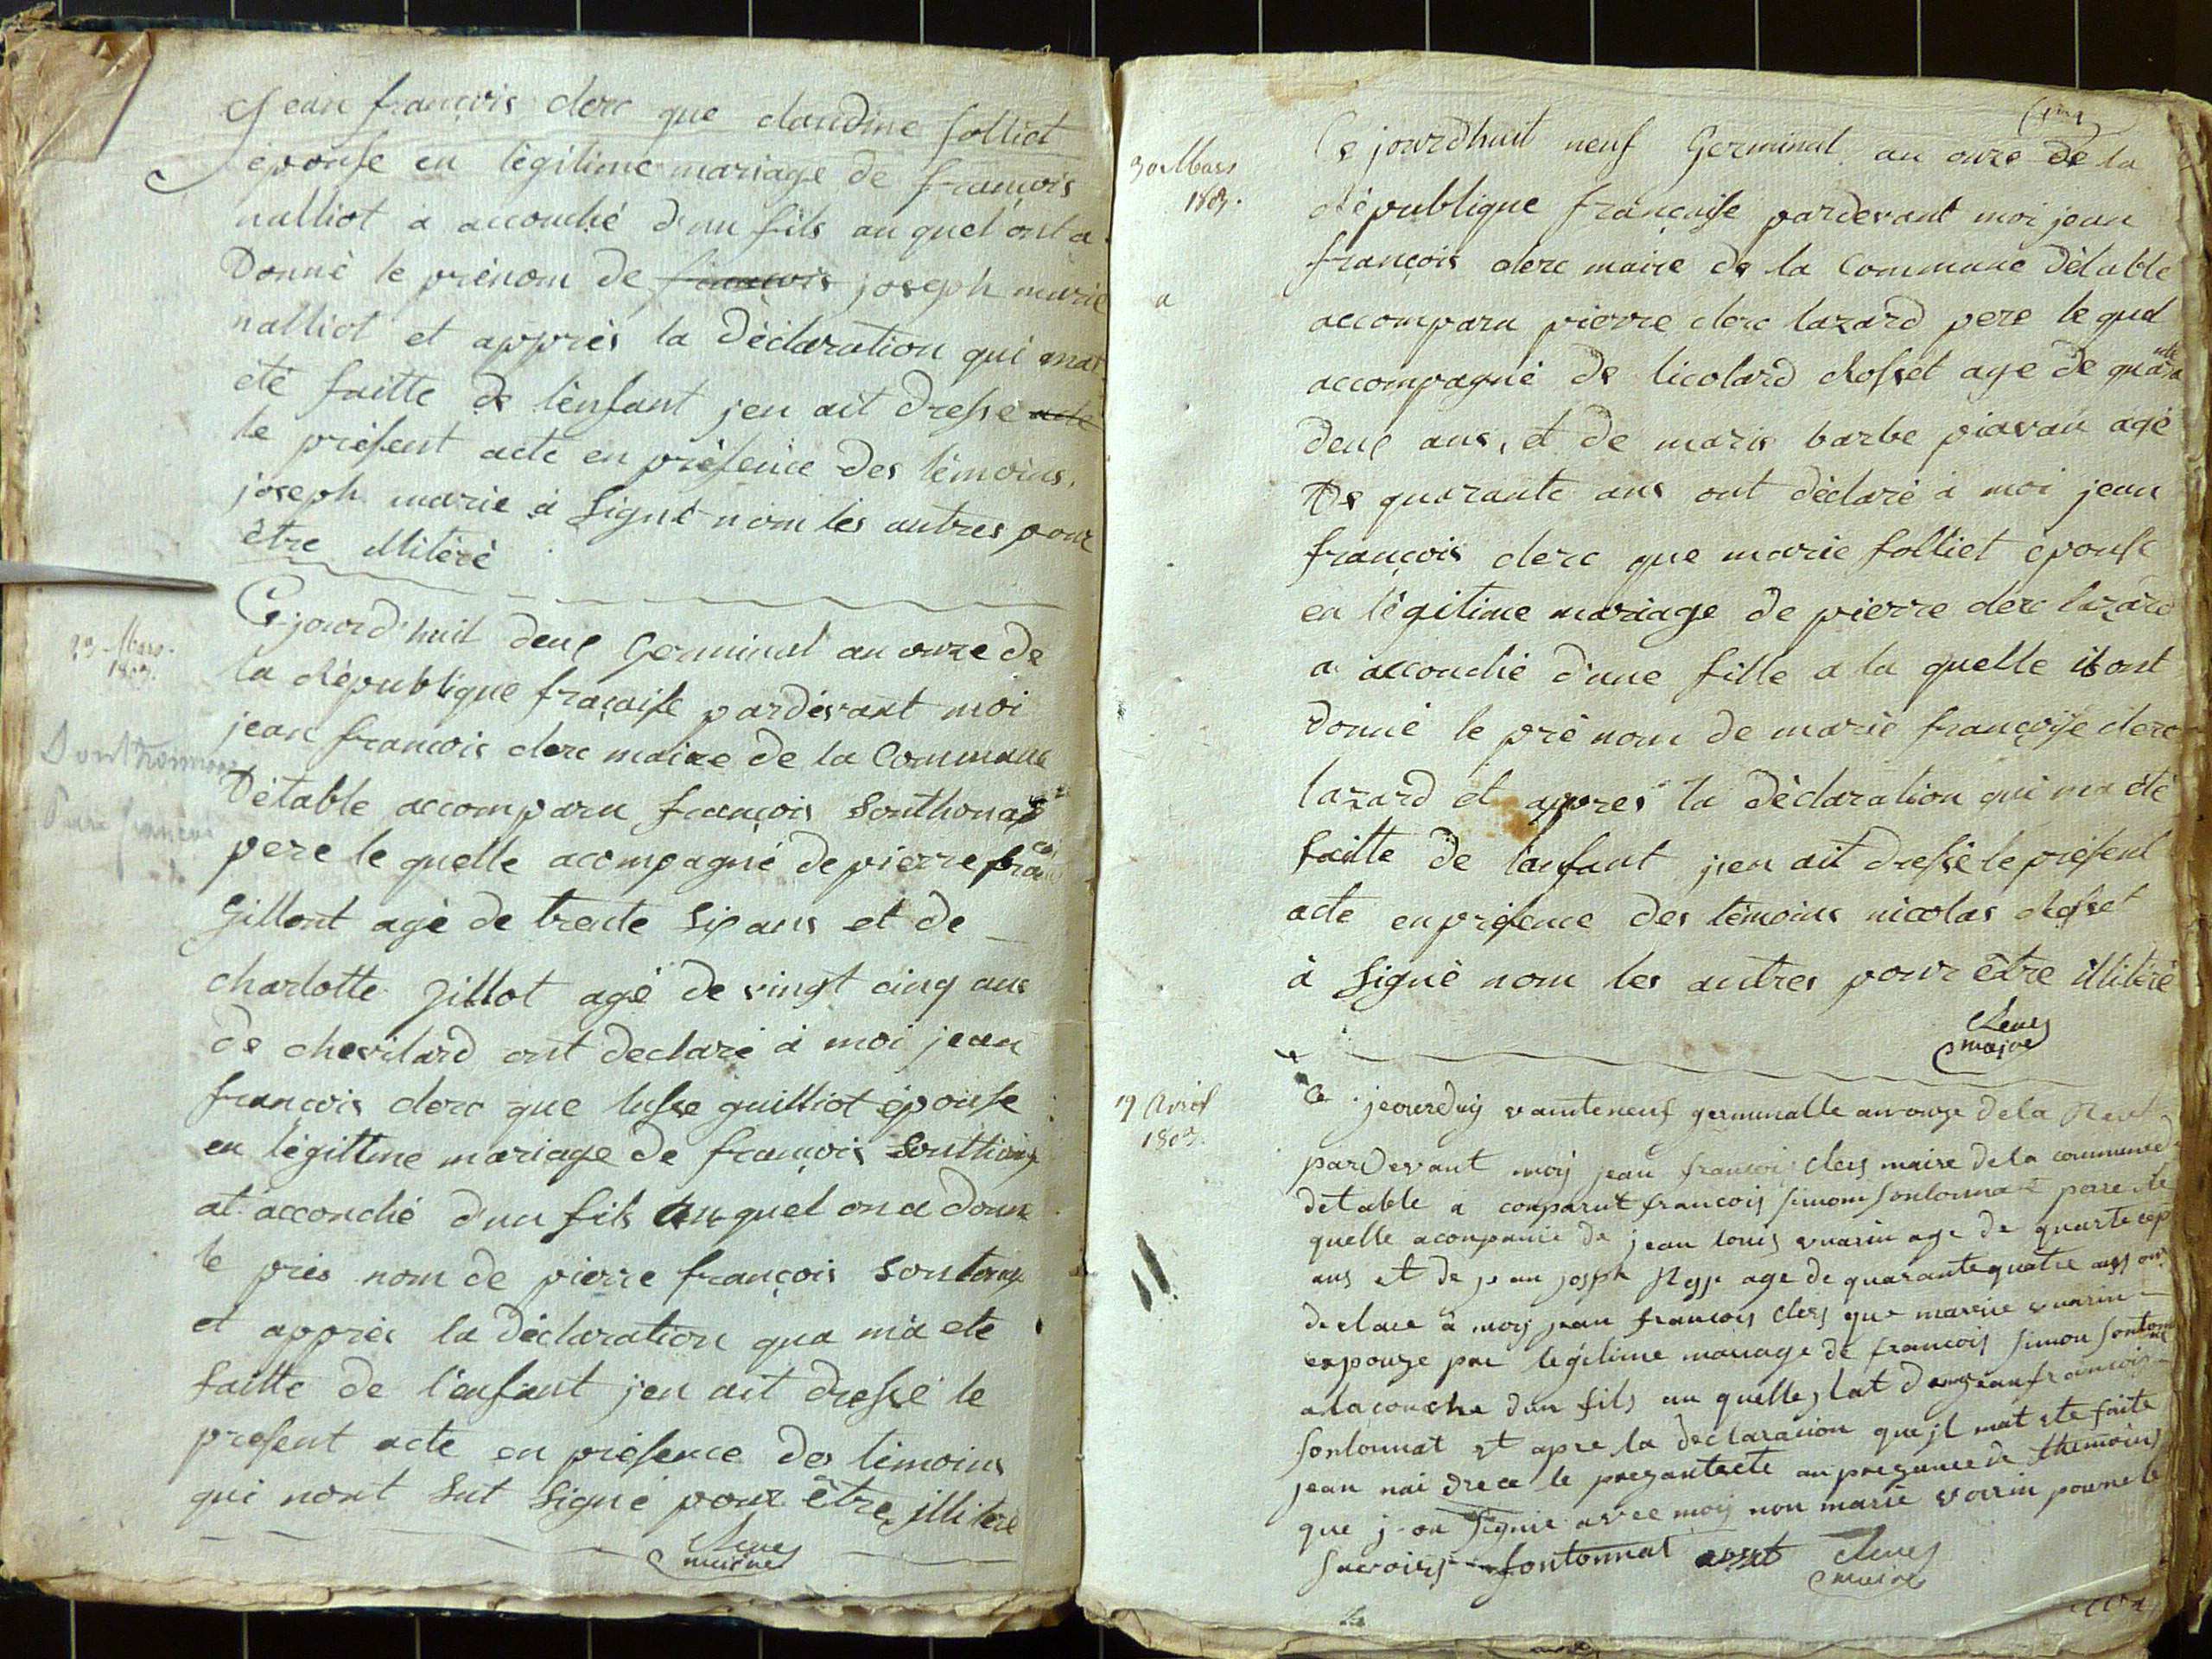 Jean françois clerc que claudine folliet
épouse en légitime mariage de françois
nalliot a accouché d'un fils au quel ont a
Donné le prénom de françois joseph marie
nalliot et apprès la Déclaration qui mat
été faitte de l'enfant jen ait dressé acte
le présent acte en présence des témoins.
joseph marie à signé nom les autres pour
être illiteré
23 Mars
1803.
Ce jourd'huit deux Germinal an onze de
la République fraçaise pardevant moi
jean francois clerc maire de la Commune
Détable accomparu françois Southonax
pere le quelle acompagné de pierre
Gillont agé de trente six ans et de
charlotte Gillot agé de vingt cinq ans
de chevilard ont declaré à moi jean
françois clerc que lusse guilliot épouse
en légittime mariage de françois
at accouché d'un fils auquel on a donné
le prés nom de pierre françois
et apprès la déclaration qua m'a ete
faitte de l'enfant jen ait dressé le
present acte en présence des témoins
qui nont sut signé pour être illiteré
30 Mars
1803.
Ce jourdhuit neuf Germinal an onze de la
République françaisse pardevant moi jean
françois clerc maire de la Commune Détable
accomparu pierre clerc lazard pere le quel
accompagné de licolard Rosset age de quarante
deux ans, et de marie barbe piavan agé
De quarante ans ont déclaré à moi jean
françois clerc que marie folliet épouse
en légitime mariage de pierre clerc lazard
a accouché d'une fille a la quelle ils ont
donné le pré nom de marie françoise clerc
lazard et apprès la déclaration qui ma été
faitte de l'enfant jen ait dressé le présent
acte en présence des témoins nicolas Rosset
à signé nom les autres pour être illiteré
maire
19 Avril
1803.
Ce jeourduy vainteneuf germinalle an onze dela
pardevant moy jean francois clers maire dela commune
detable a comparut francois simon sontonnat perre le
quelle acompanié de jean louis vuarin age de quarte sep
ans et de jean joseph age de quarante quatre ans ont
declare a moy jean francois clers que marie vuarin
expouze par legitime mariage de francois simon
alacouche dun fils au quelle lat jean francois
sontonnat et apre la declaracion que jl mat ete faite
jean nai drece le prezantacte an prezance de themoins
que j on signie avec moy non marie vorrin pour ne le
savoirs sontonnat
maire